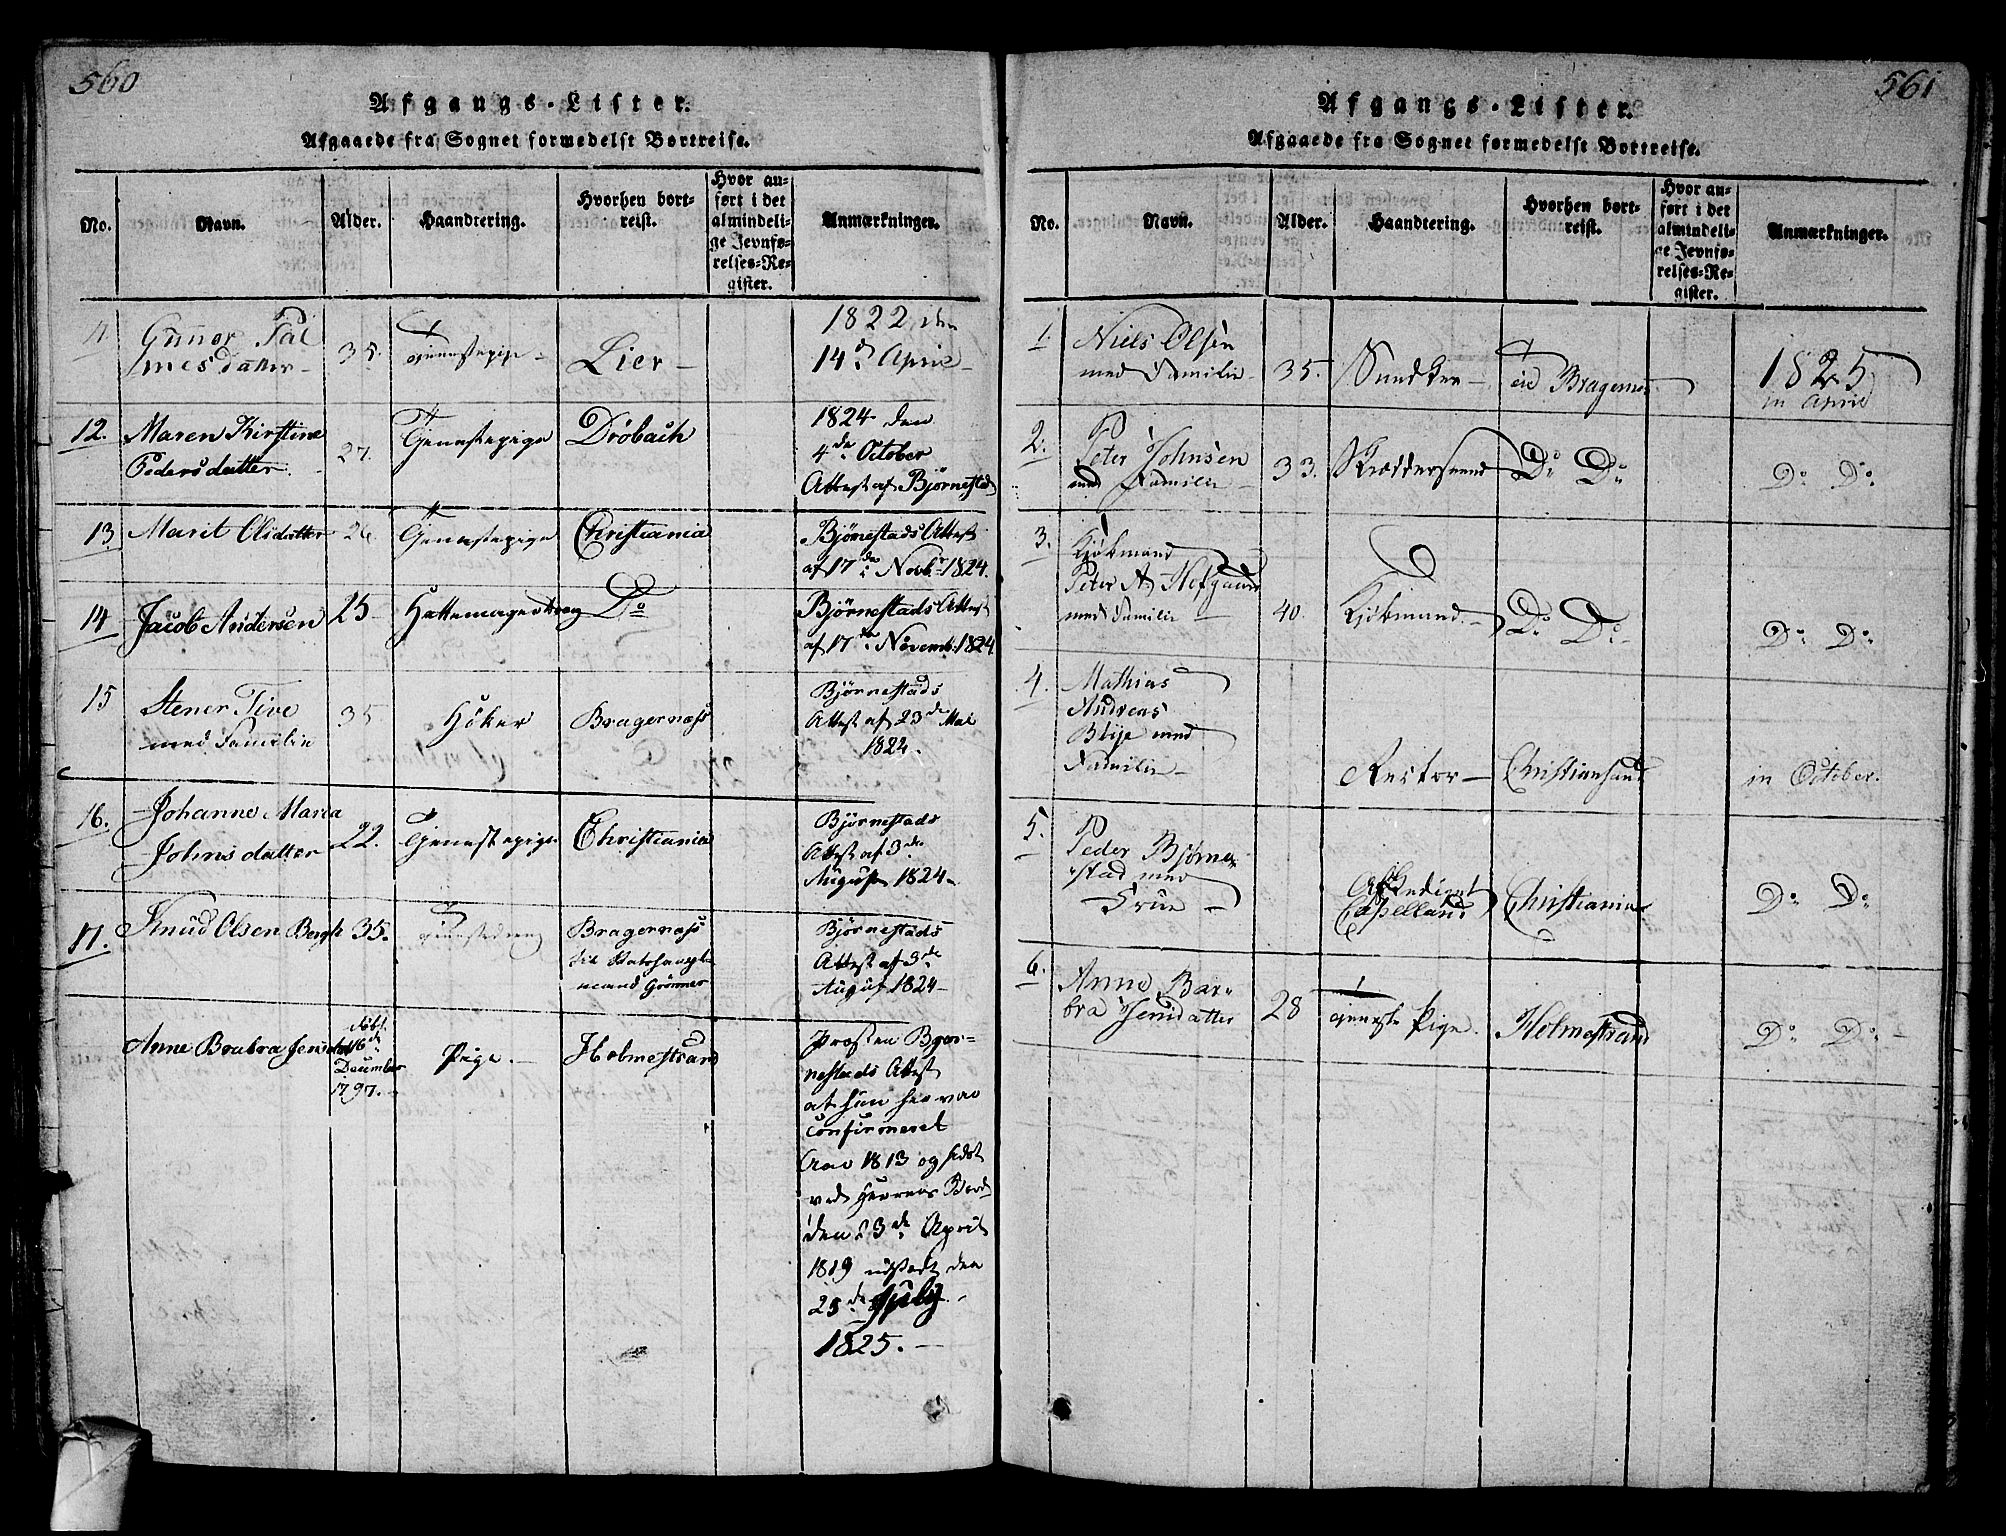 560
Afgangs-Lister.
Afgaaede fra Sognet formedelst Bortreise.
No. Navn. Alder. Haandtering. Hvorhen bort-
reist. Hvor an-
ført i det
almindeli-
ge Jevnfø-
relses-Re-
gister. Anmærkninger.
11 Gunnor Pal
mesdatter 35. Tjenestepige Lier 1822 den
14de April
12. Maren Kirstine
Pedersdatter 27. Tjenestepige Drøbach 1824 den
4de October
Attest af Bjørnestad
13. Marit Olsdatter 26 Tjenestepige Christiania Bjørnestads Attest
af 17de Novbr 1824.
14 Jacob Andersen 25 Hattemagerdreng Do Bjørnestads Attest
af 17de Novemb: 1824
15 Stener Tive
med Familie 35 Høker Bragernæss Bjørnestads
Attest af 23de Mai
1822.
16. Johanne Maria
Johnsdatter 22. Tjenestepige Christiania Bjørnestads
Attest af 3de
August 1824
17. Knud Olsen Bergh 35. Tjenestedreng Bragernæss
til
mand Grønner Bjørnestads
Attest af 3de
August 1824
Anne Brabra Jensdat Døbt
16de
December
1797. Pige. Holmestrand Prosten Bjør-
nestads Attest
at hun her var
confirmeret
Aar 1813 og sidst
ved Herrens Bord
den 23de April
1819 udstædt den
25de July
1825.
561
Afgangs-Lister.
Afgaaede fra Sognet formedelst Bortreise.
No. Navn. Alder. Haandtering. Hvorhen bort-
reist. Hvor an-
ført i det
almindeli-
ge Jevnfø-
relses-Re-
gister. Anmærkninger.
1. Niels Olsen
med Familie 35. Snedker til Bragernes 1825
in April
2. Peter Johnsen
med Familie 33. Skræddersvend Do Do Do Do
3. Kjøbmand
Peter A.
med Familie 40. Kjøbmand Do Do Do Do
4. Mathias
Andreas
med
Familie Rector Christiansand in October.
5. Peder Bjørne-
stad med
Frue
Capelland Christiania Do Do
6. Anne Bar-
bra Jensdatter 28 Tjeneste Pige. Holmestrand Do Do